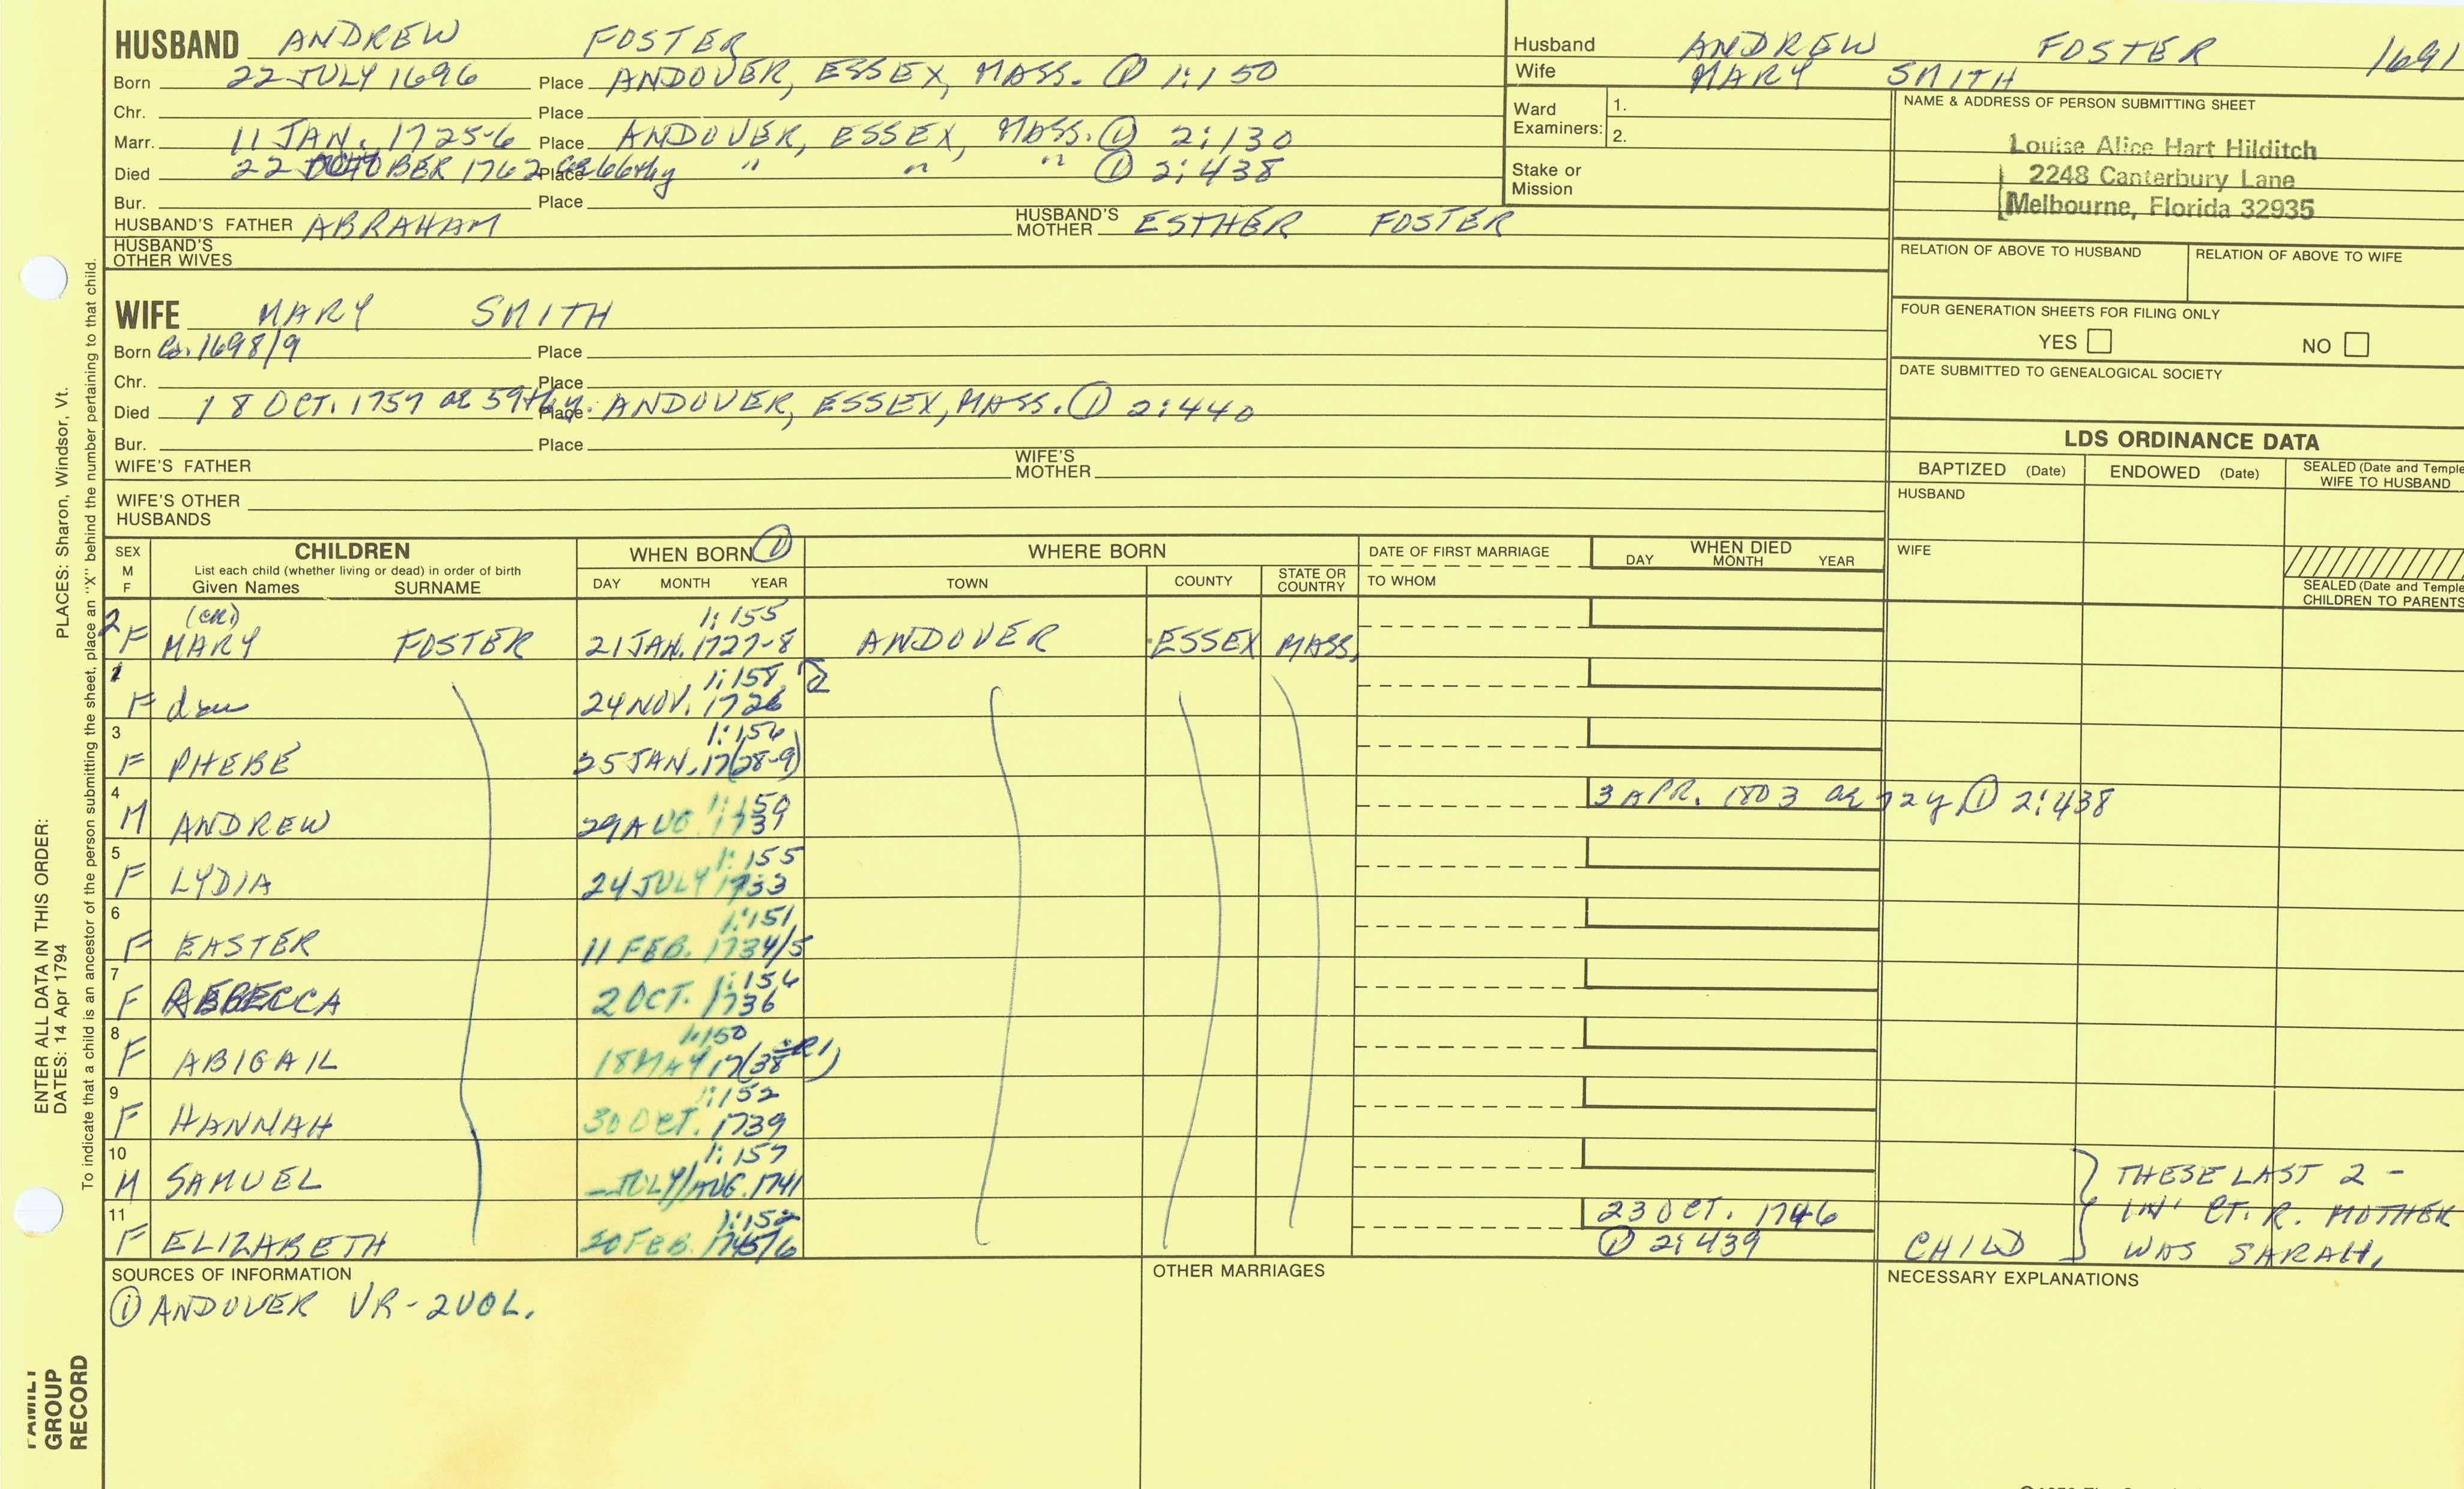 HUSBAND ANDREW FOSTER
Born 22 JULY 1696 Place ANDOVER, ESSEX, MASS. ① 1:150
Chr. Place
Marr. 11 JAN. 1725-6 Place ANDOVER, ESSEX, MASS. ① 2:130
Died 22 OCTOBER 1762 Place ae 66thy " " " ① 2:438
Bur. Place
HUSBAND'S FATHER ABRAHAM HUSBAND'S MOTHER ESTHER FOSTER
HUSBAND'S OTHER WIVES
Husband ANDREW FOSTER 1691
Wife MARY SMITH
Ward Examiners: 1.
2.
Stake or Mission
NAME & ADDRESS OF PERSON SUBMITTING SHEET
Louise Alice Hart Hilditch
2248 Canterbury Lane
Melbourne, Florida 32935
RELATION OF ABOVE TO HUSBAND RELATION OF ABOVE TO WIFE
FOUR GENERATION SHEETS FOR FILING ONLY
YES NO
DATE SUBMITTED TO GENEALOGICAL SOCIETY
WIFE MARY SMITH
Born Ca. 1698/9 Place
Chr. Place
Died 18 OCT. 1757 ae 59thy. Place ANDOVER, ESSEX, MASS. ① 2:440
Bur. Place
WIFE'S FATHER WIFE'S MOTHER
WIFE'S OTHER HUSBANDS
LDS ORDINANCE DATA
BAPTIZED (Date) ENDOWED (Date) SEALED (Date and Temple
WIFE TO HUSBAND
HUSBAND
WIFE
SEALED (Date and Temple
CHILDREN TO PARENTS
SEX M F CHILDREN WHEN BORN ① WHERE BORN DATE OF FIRST MARRIAGE WHEN DIED
List each child (whether living or dead) in order of birth
Given Names SURNAME DAY MONTH YEAR TOWN COUNTY STATE OR COUNTRY TO WHOM DAY MONTH YEAR
2 (CR1) 1:155
F MARY FOSTER 21 JAN. 1727-8 ANDOVER ESSEX MASS.
1 1:158
F dau 24 NOV. 1726
3 1:156
F PHEBE 25 JAN. 17(28-9)
4 1:150 3 APR. 1803 ae 72y ① 2:438
M ANDREW 29 AUG
5 1:155
F LYDIA 24 JULY 1733
6 1:151
F EASTER 11 FEB. 1734/5
7 1:156
F REBECCA 2 OCT. 1736
8 1:150
F ABIGAIL 18 MAY 17(38 CR1)
9 1:152
F HANNAH 30 OCT. 1739
10 1:157
M SAMUEL — JULY/AUG. 1741
11 1:152 23 OCT. 1746
F ELIZABETH 20 FEB. 1745/6 ① 2:439 CHILD
} THESE LAST 2 -
IN CT. R. MOTHER
WAS SARAH.
SOURCES OF INFORMATION
① ANDOVER VR - 2 VOL.
OTHER MARRIAGES
NECESSARY EXPLANATIONS
ENTER ALL DATA IN THIS ORDER:
DATES: 14 Apr 1794 PLACES: Sharon, Windsor, Vt.
To indicate that a child is an ancestor of the person submitting the sheet, place an "X" behind the number pertaining to that child.
FAMILY
GROUP
RECORD